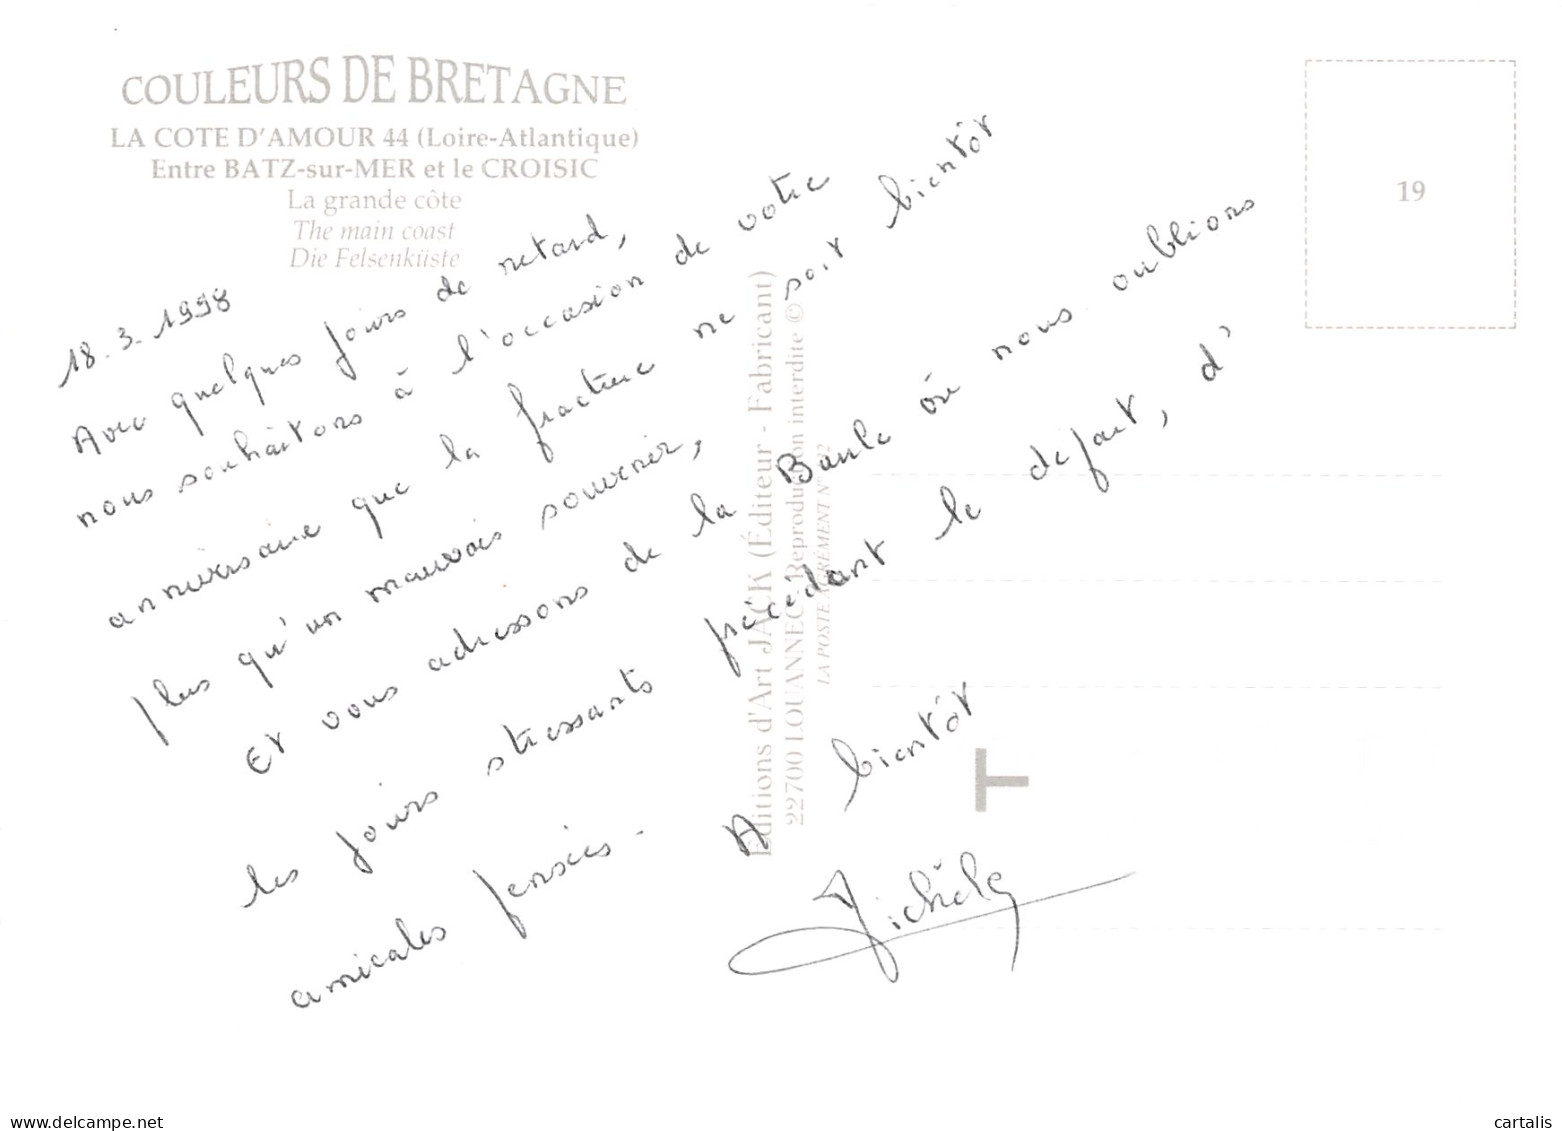 COULEURS DE BRETAGNE
LA COTE D'AMOUR 44 (Loire-Atlantique)
Entre BATZ-sur-MER et le CROISIC
La grande côte
The main coast
Die Felsenküste
19
18.3.1998
Avec quelques jours de retard,
nous souhaitons à l'occasion de votre
anniversaire que la fracture ne soit bientôt
plus qu'un mauvais souvenir,
Et vous adressons de la Baule où nous oublions
les jours stressants précédant le départ, d'
amicales pensées. A bientôt
Michèle
Editions d'Art JACK (Éditeur - Fabricant)
22700 LOUANNEC Reproduction interdite ©
LA POSTE AGRÉMENT N°
T
www.delcampe.net
cartalis